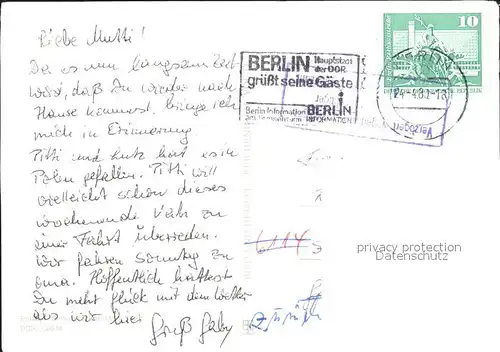 Liebe Mutti!
Da es nun langsam Zeit
wird, daß Du wieder nach
Hause kommst, bringe ich
mich in Erinnerung
Titti und Lutz hat es in
Polen gefallen. Titti will
vielleicht schon dieses
wochenende Vati zu
einer Fahrt überreden.
Wir fahren Sonntag zu
Oma. Hoffentlich hattest
Du mehr Glück mit dem Wetter
als wir hier
Gruß Gaby
BERLIN Hauptstadt
der DDR
grüßt seine Gäste
Berlin-Information
BERLIN
INFORMATION
10
Verzogen
zurück
privacy protection
Datenschutz